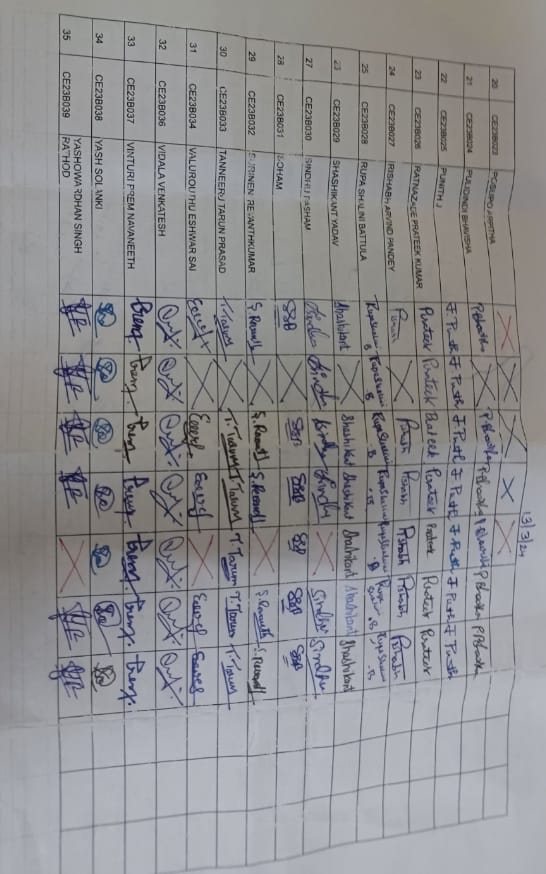 13/3/24
20 CE23B023 POSUPO ARPITHA
21 CE23B024 PULIDINDI BHAVISHA P.Bhavisha P.Bhavisha P.Bhavisha P.Bhavisha P.Bhavisha P.Bhavisha
22 CE23B025 PUNITH J J. Punith J. Punith J. Punith J. Punith J. Punith J. Punith J. Punith
23 CE23B026 RATNAZADE PRATEEK KUMAR Prateek Prateek Prateek Prateek Prateek Prateek Prateek
24 CE23B027 RISHABH ARVIND PANDEY Rishabh Rishabh Rishabh Rishabh Rishabh Rishabh
25 CE23B028 RUPA SHALINI BATTULA RupaShalini.B RupaShalini.B RupaShalini.B RupaShalini.B RupaShalini.B Rupa Shalini.B RupaShalini.B
23 CE23B029 SHASHIKANT YADAV Shashikant Shashikant Shashikant Shashikant Shashikant Shashikant
27 CE23B030 SINDHU PASHAM Sindhu Sindhu Sindhu Sindhu Sindhu Sindhu
28 CE23B031 SOHAM SSB SSB SSB SSB SSB SSB
29 CE23B032 REVANTHKUMAR
30 CE23B033 TANNEERU TARUN PRASAD T.Tarun T.Tarun T.Tarun T.Tarun T.Tarun T.Tarun
31 CE23B034 VALUROUTHU ESHWAR SAI
32 CE23B036 VIDALA VENKATESH
33 CE23B037 VINTURI PREM NAVANEETH Prem Prem Prem Prem Prem Prem. Prem.
34 CE23B038 YASH SOLANKI
YASHOWARDHAN SINGH
35 CE23B039 RATHOD